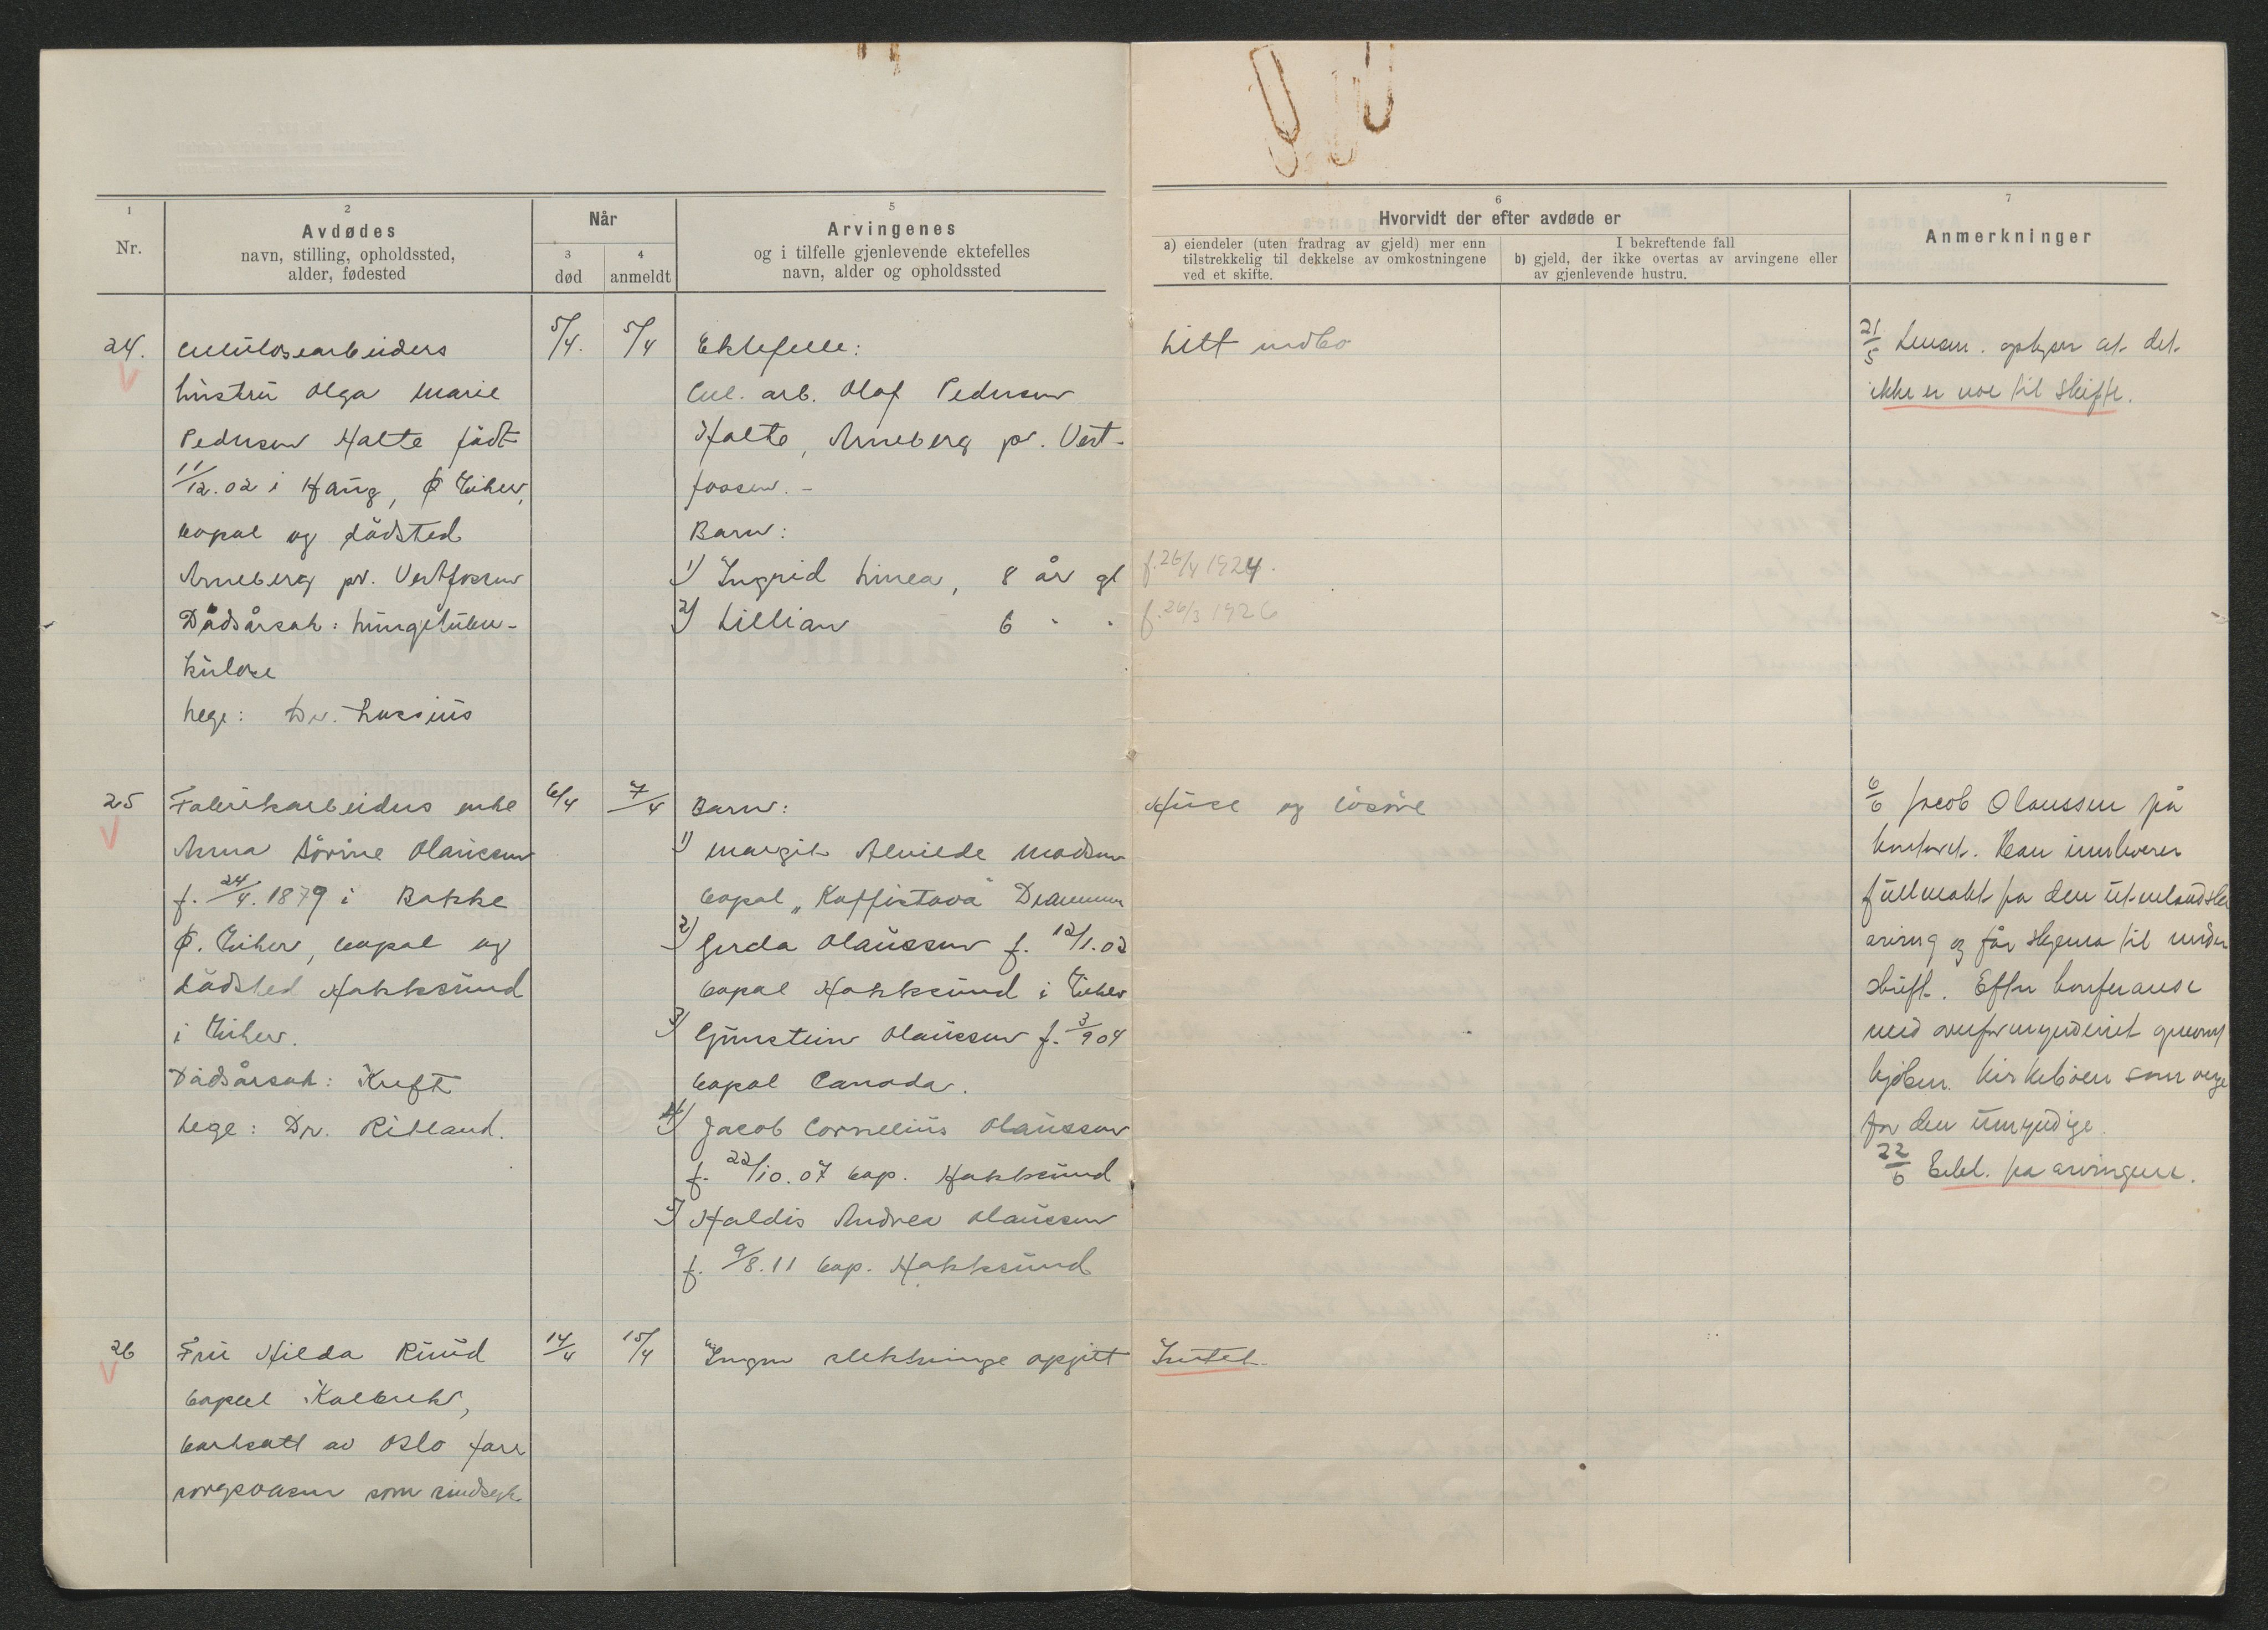 1
Nr.
2
Avdødes
navn, stilling, opholdssted,
alder, fødested
Når
3
død
4
anmeldt
5
Arvingenes
og i tilfelle gjenlevende ektefelles
navn, alder og opholdssted
6
Hvorvidt der efter avdøde er
a) eiendeler (uten fradrag av gjeld) mer enn
tilstrekkelig til dekkelse av omkostningene
ved et skifte.
I bekreftende fall
b) gjeld, der ikke overtas av arvingene eller
av gjenlevende hustru.
7
Anmerkninger
24.
Cellulosearbeiders
hustru Olga Marie
Pedersen Holte født
11/12.02 i Haug, Ø. Eiker,
bopæl og dødsted
Arneberg pr. Vestfossen
Dødsårsak: lungetuber-
kulose
Lege: Dr. Lassius
5/4.
5/4
Ektefelle:
Cel. arb. Olaf Pedersen
Holte, Arneberg pr. Vest-
fossen. -
Barn:
1) Ingrid Linea, 8 år gl
2) Lillian 6 " "
Litt indbo
f. 26/4 1924.
f. 26/3 1926
21/5 Lensm. oplyser at det
ikke er noe til skifte.
25
Fabrikarbeiders enke
Anna Sørine Olaussen
f. 24/4. 1879 i Bakke
Ø. Eiker, bopæl og
dødsted Hokksund
i Eiker.
Dødsårsak: Kreft
Lege: Dr. Risland.
6/4
7/4
Barn:
1) Margit Alvilde Madsen
bopæl "Kaffistova" Drammen
2) Gerda Olaussen f. 12/1.02
bopæl Hokksund i Eiker
3) Gunstein Olaussen f. 3/9 04
bopæl Canada.
4) Jacob Cornelius Olaussen
f. 22/10.07 bop. Hokksund
5) Haldis Andrea Olaussen
f. 9/8.11 bop. Hokksund
Huse og løsøre
6/6 Jacob Olaussen på
kontoret. Han innleverer
fullmakt fra den utenlandske
arving og får skjema til under
skrift. Efter konferanse
med overformynderiet opnevnt
Kirkebøen som verge
for den umyndige.
22/6 Erkl. fra arvingene.
26
Fru Hilda Ruud
bopæl Kolbrek,
bortsatt av Oslo for
sorgsvæsen som sindsyk
14/4
15/4
Ingen slektninge opgitt
Intet.